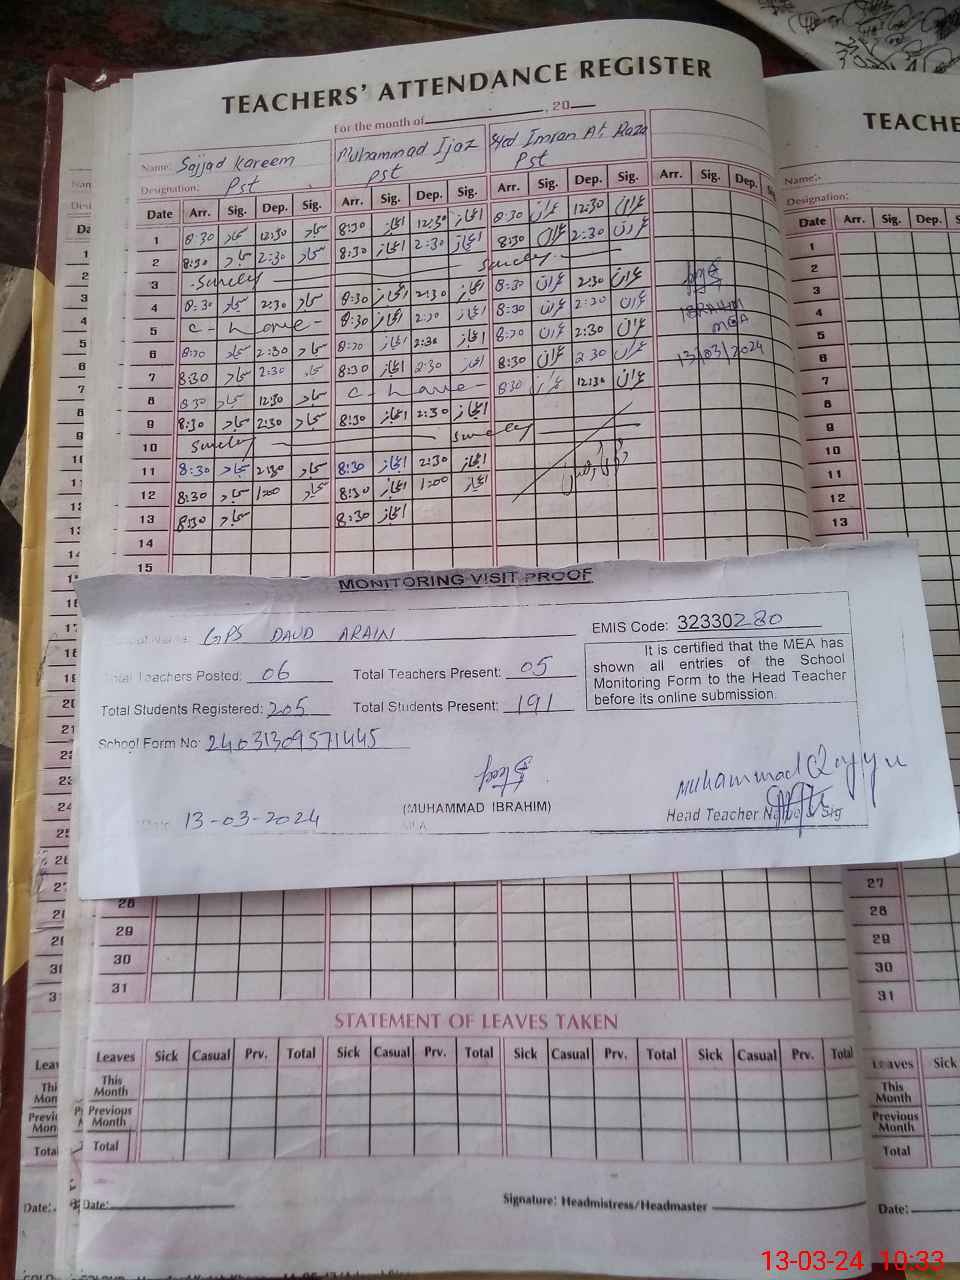 TEACHERS' ATTENDANCE REGISTER
For the month of , 20
Name: Sajjad Kareem Muhammad Ijaz Syed Imran Ali Raza
Designation: Pst Pst Pst
Date Arr. Sig. Dep. Sig. Arr. Sig. Dep. Sig. Arr. Sig. Dep. Sig. Arr. Sig. Dep.
1 8:30 سجاد 12:30 سجاد 8:30 اعجاز 12:30 اعجاز 8:30 عمران 12:30 عمران
2 8:30 سجاد 2:30 سجاد 8:30 اعجاز 2:30 اعجاز 8:30 عمران 2:30 عمران
3
4 8:30 سجاد 2:30 سجاد 8:30 اعجاز 2:30 اعجاز 8:30 عمران 2:30 عمران
5 8:30 اعجاز 2:30 اعجاز 8:30 عمران 2:30 عمران IBRAHIM
MEA
6 8:30 سجاد 2:30 سجاد 8:30 اعجاز 2:30 اعجاز 8:30 عمران 2:30 عمران 13/03/2024
7 8:30 سجاد 2:30 سجاد 8:30 اعجاز 2:30 اعجاز 8:30 عمران 2:30 عمران
8 8:30 سجاد 12:30 سجاد 8:30 عمران 12:30 عمران
9 8:30 سجاد 2:30 سجاد 8:30 اعجاز 2:30 اعجاز
10
11 8:30 سجاد 2:30 سجاد 8:30 اعجاز 2:30 اعجاز
12 8:30 سجاد 1:00 سجاد 8:30 اعجاز 1:00 اعجاز
13 8:30 سجاد 8:30 اعجاز
14
15
MONITORING VISIT PROOF
Name: GPS DAUD ARAIN EMIS Code: 32330280
Total Teachers Posted: 06 Total Teachers Present: 05
It is certified that the MEA has
shown all entries of the School
Monitoring Form to the Head Teacher
before its online submission.
Total Students Registered: 205 Total Students Present: 191
School Form No: 24031309571445
Muhammad Qayyu
(MUHAMMAD IBRAHIM)
Head Teacher Name Sig
Date: 13-03-2024
28
29
30
31
STATEMENT OF LEAVES TAKEN
Leaves Sick Casual Prv. Total Sick Casual Prv. Total Sick Casual Prv. Total Sick Casual Prv. Total
This Month
Previous Month
Total
Date: Signature: Headmistress/Headmaster
TEACHE
Name:-
Designation:
Date Arr. Sig. Dep. S
1
2
3
4
5
6
7
8
9
10
11
12
13
27
28
29
30
31
Leaves Sick
This Month
Previous Month
Total
Date:
13-03-24 10:33